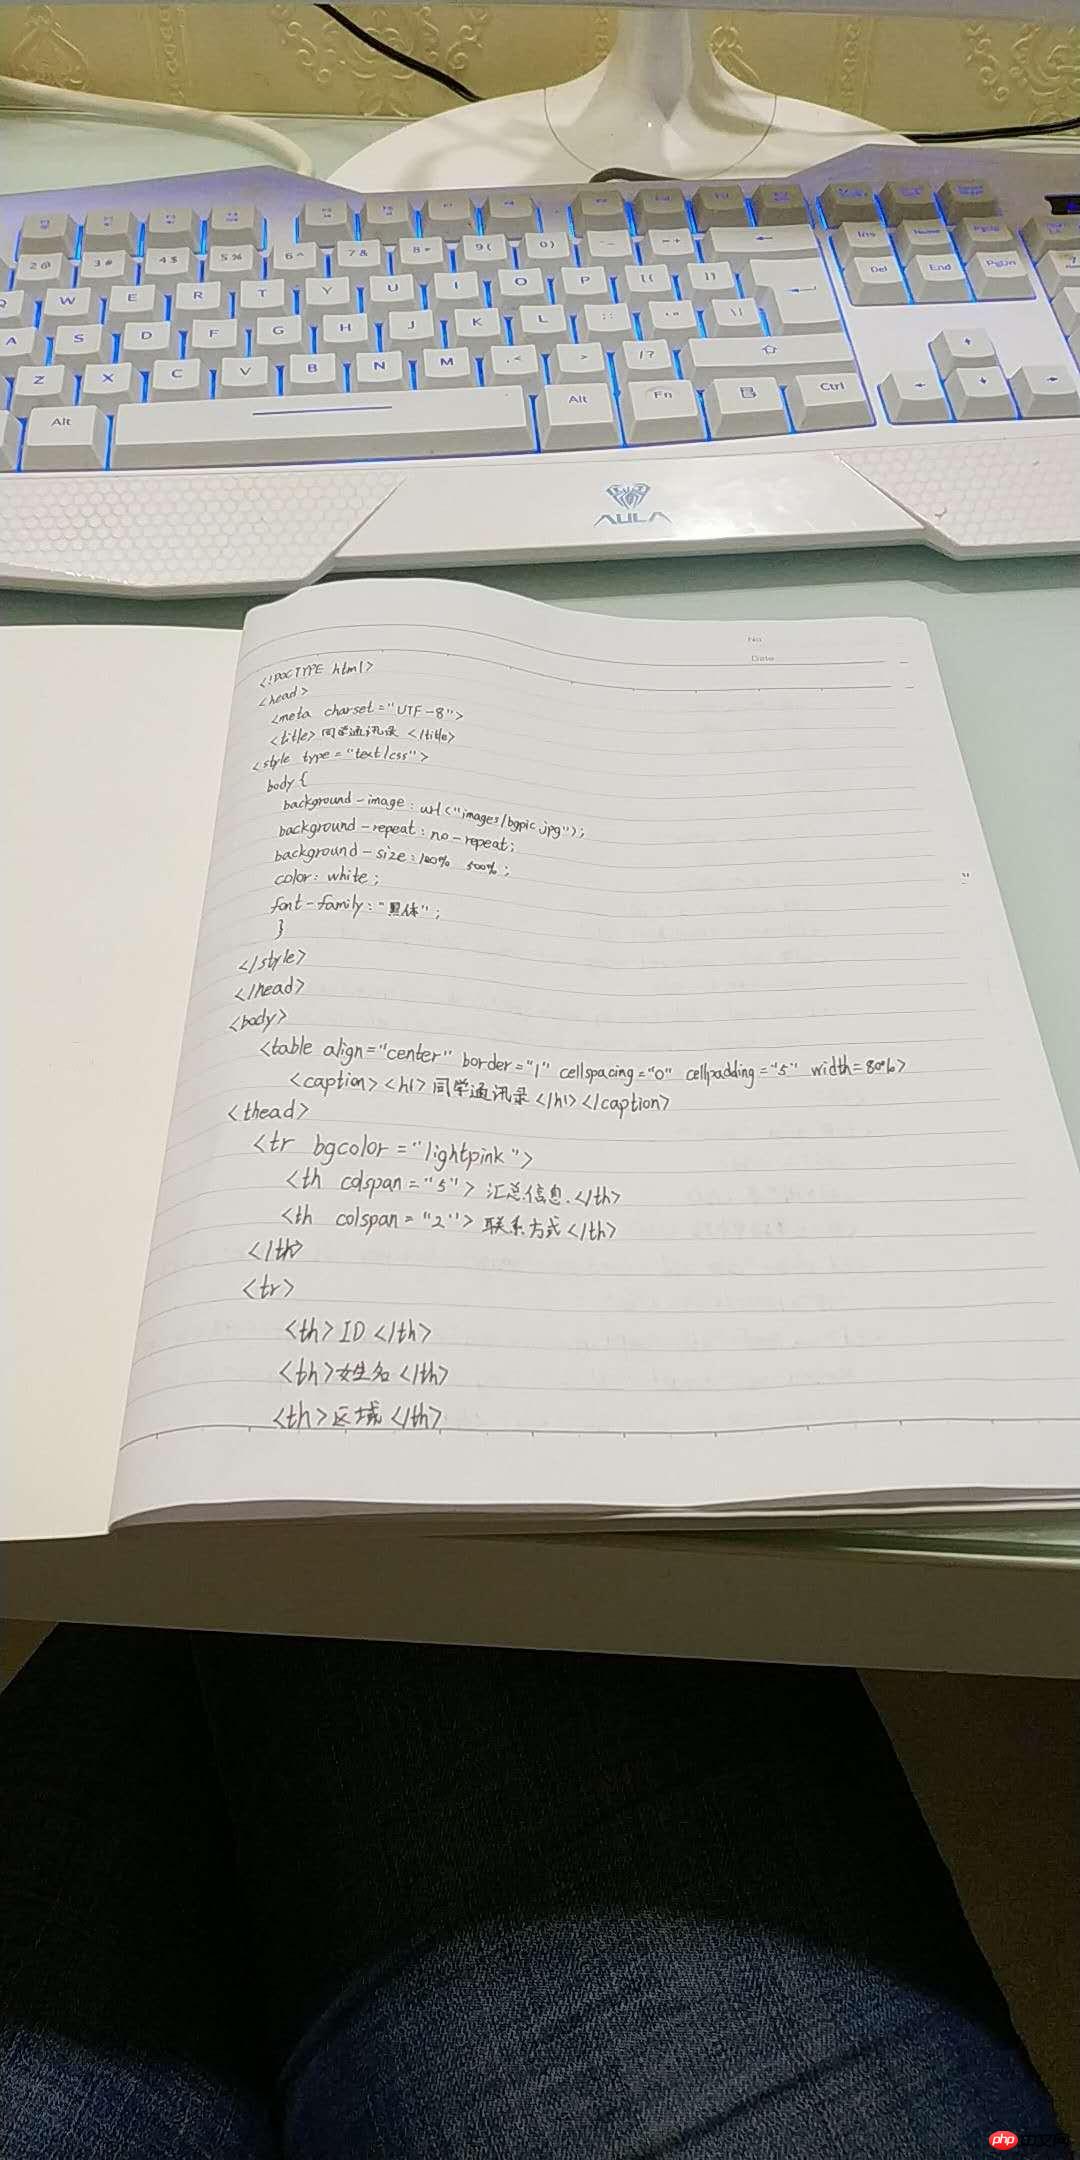 2@ 3# 4$ 5% 6^ 7& 8* 9( 0) -- =+ ← Ins Home PgUp
Q W E R T Y U I O P [{ ]} Del End PgDn
A S D F G H J K L :; "" \| ↑
Z X C V B N M ,< > /? ⇧ ← ↓ →
Alt Alt Fn Ctrl
AULA
No
Date
<!DOCTYPE html>
<head>
<meta charset="UTF-8">
<title>同学通讯录</title>
<style type="text/css">
body{
background-image:url<"images/bgpic.jpg");
background-repeat:no-repeat;
background-size:100% 500%;
color:white;
font-family:"黑体";
}
</style>
</head>
<body>
<table align="center" border="1" cellspacing="0" cellpadding="5" width=80%>
<caption><h1>同学通讯录</h1></caption>
<thead>
<tr bgcolor="lightpink">
<th colspan="5">汇总信息.</th>
<th colspan="2">联系方式</th>
</th>
<tr>
<th>ID</th>
<th>姓名</th>
<th>区域</th>
php中文网